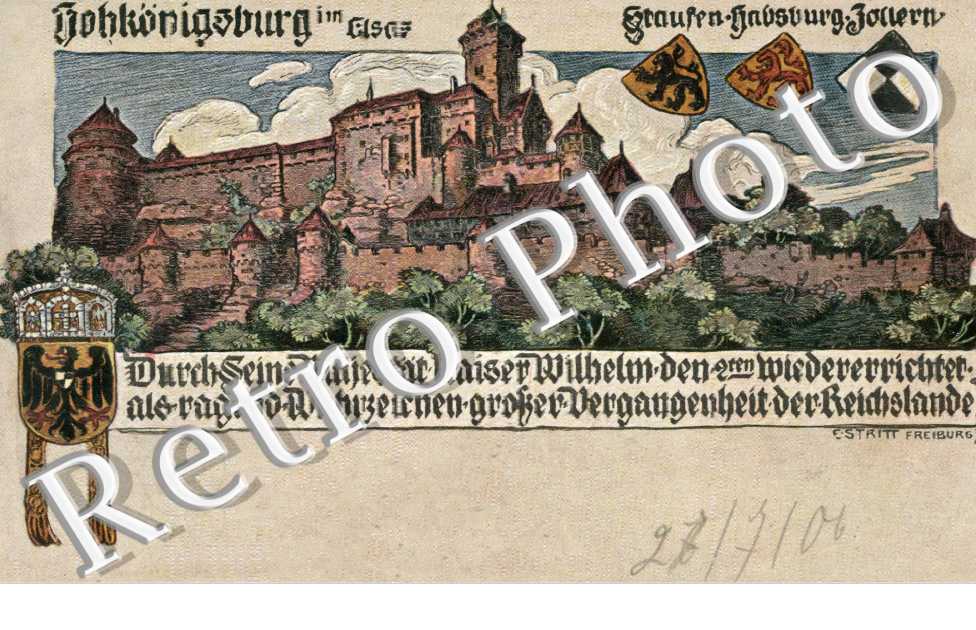 Hohkönigsburg im Elsaß
Staufen·Habsburg·Zollern
Durch Seine Majestät Kaiser Wilhelm·den·2ten wiedererrichtet·
als·ragend Wahrzeichen·großer·Vergangenheit·der·Reichslande
C·STRITT FREIBURG
Retro Photo